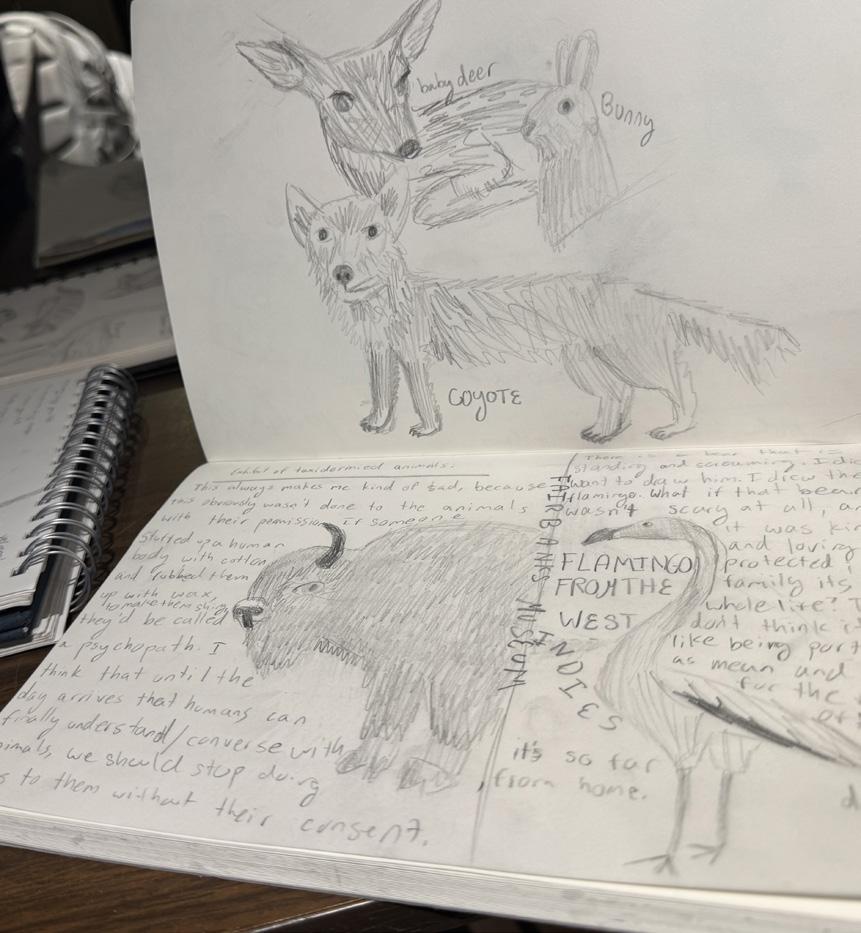 baby deer
Bunny
COYOTE
Exhibit of taxidermied animals:
This always makes me kind of sad, because
this obviously wasn't done to the animals
with their permission. If someone
stuffed up a human
body with cotton
and rubbed them
up with wax,
to make them shiny
they'd be called
a psychopath. I
think that until the
day arrives that humans can
finally understand/converse with
animals, we should stop doing
to them without their consent.
FAIRBANKS MUSEUM
There is a bear that is
standing and screaming. I
want to draw him. I drew the
flamingo. What if that bear
wasn't scary at all,
it was
and loving
protected
family its
whole life?
don't think
like being
as mean and
for the
FLAMINGO
FROM THE
WEST
INDIES
it's so far
from home.